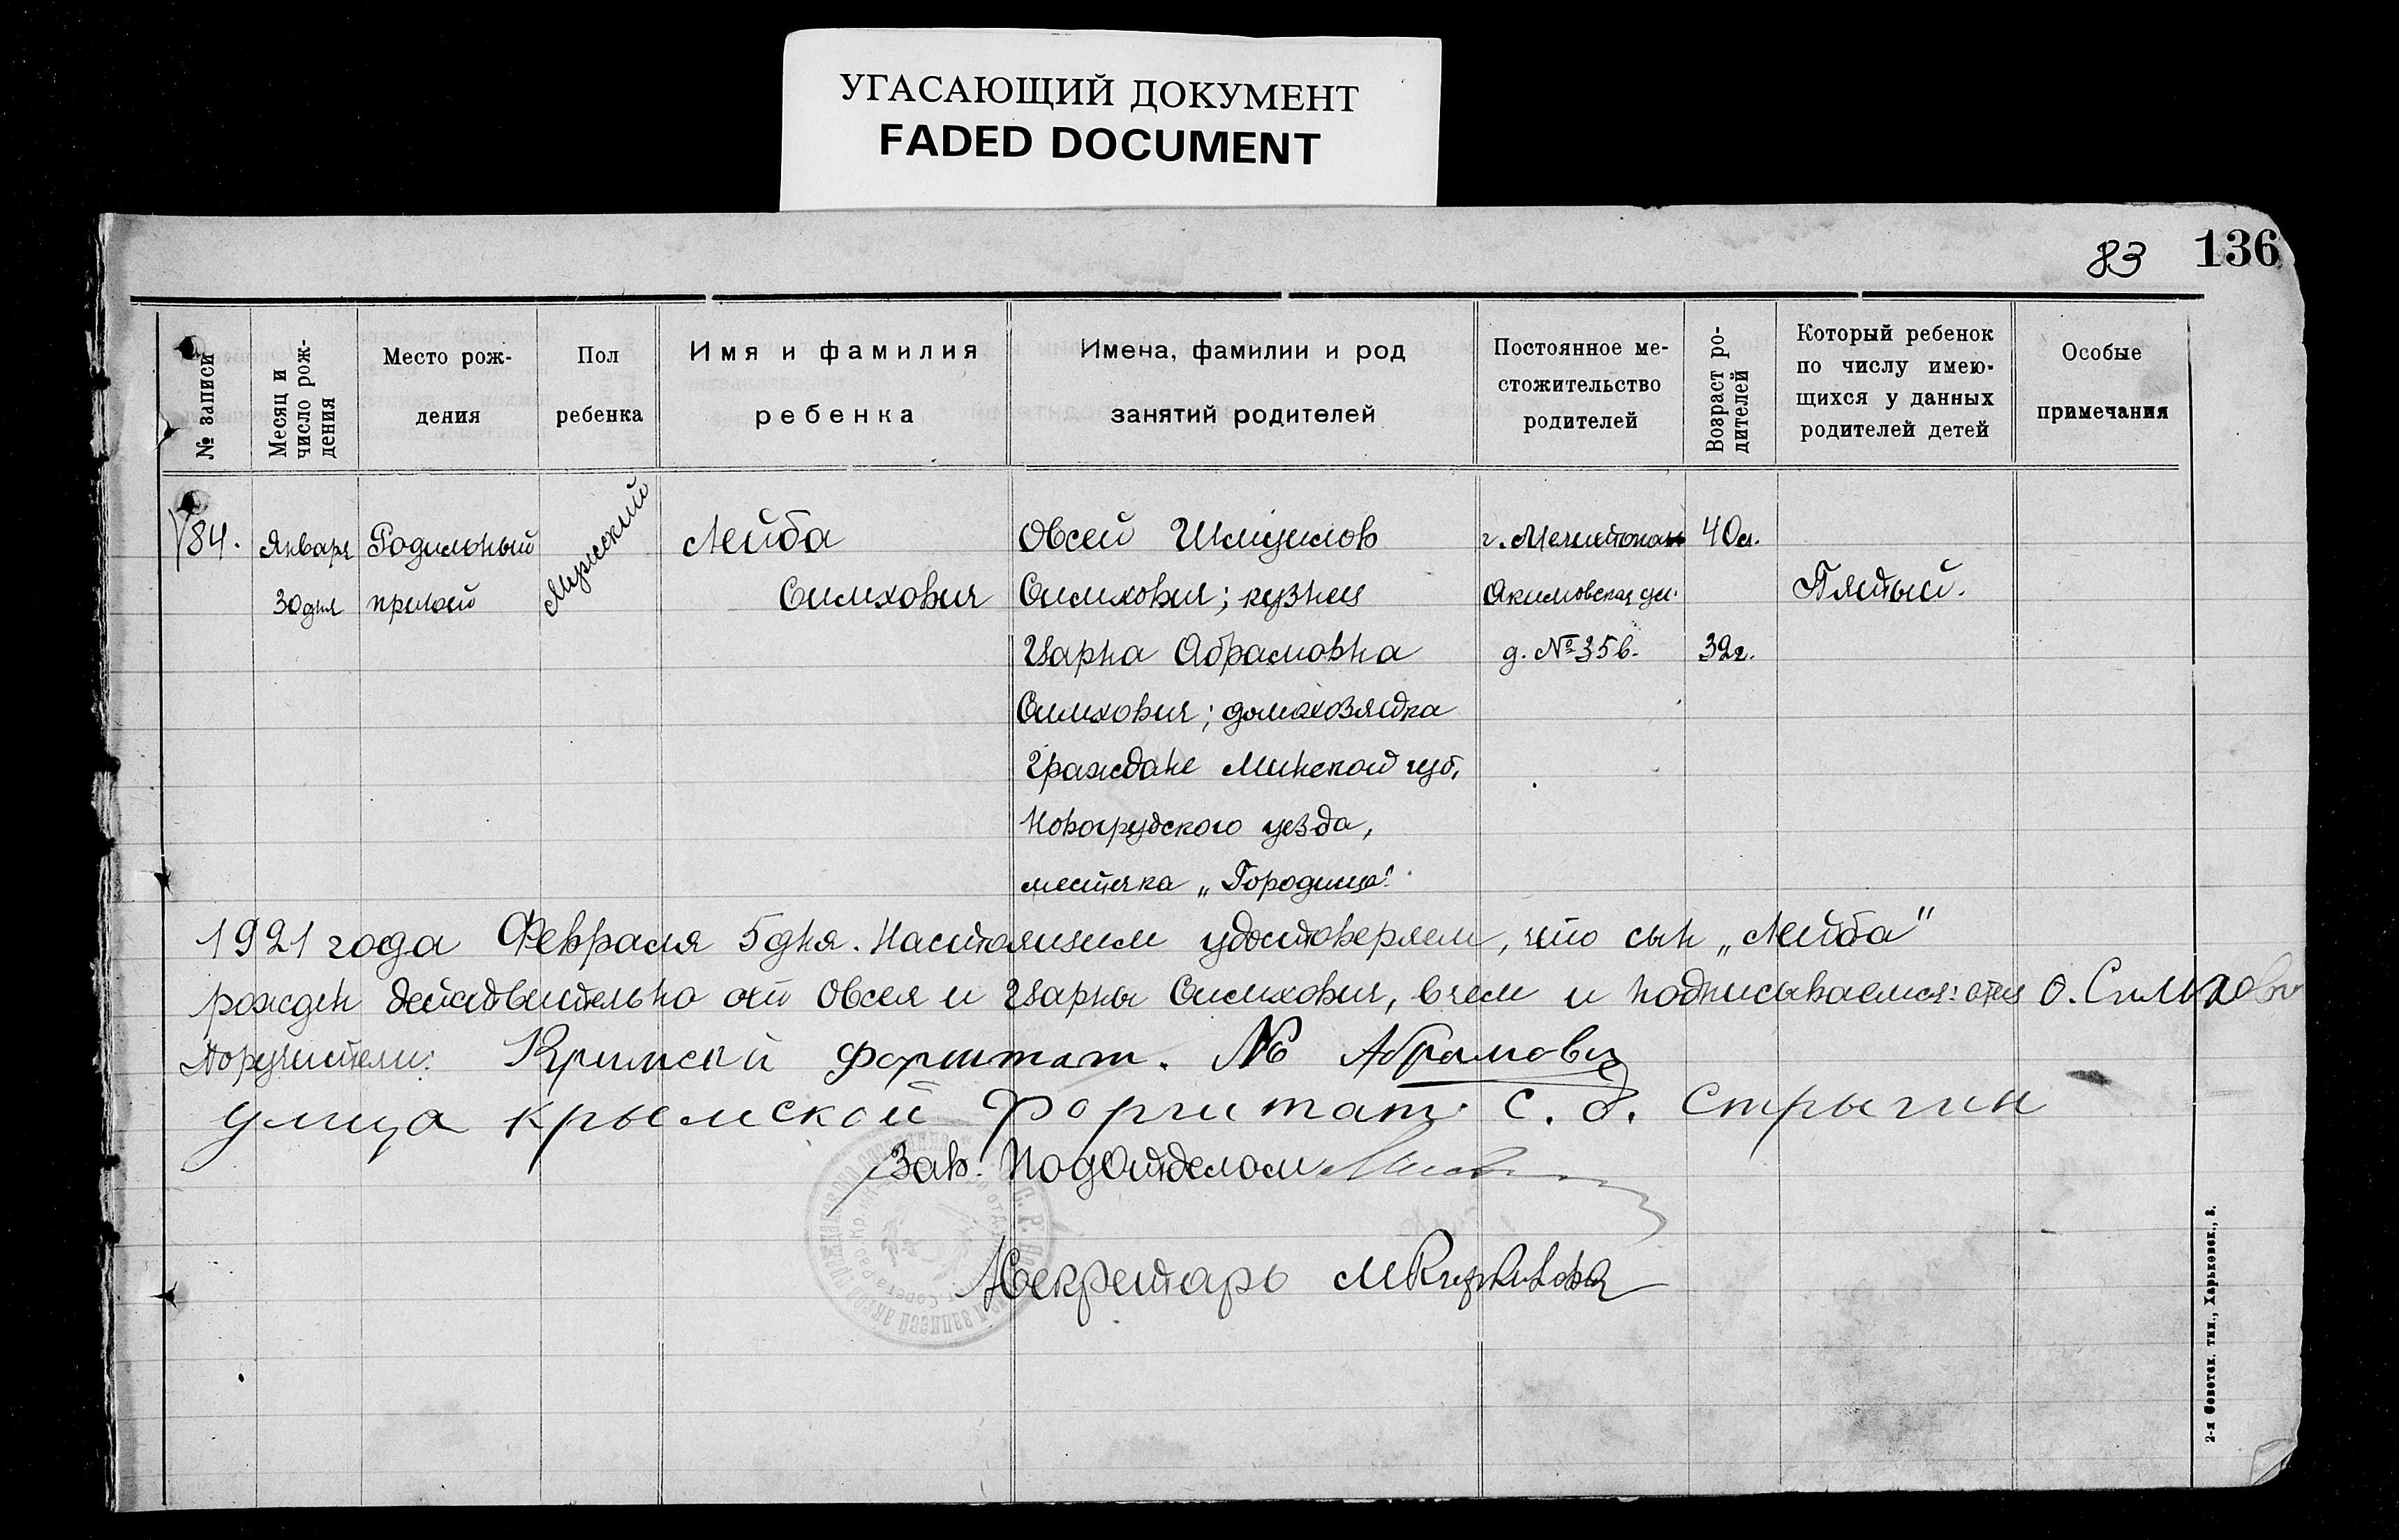 УГАСАЮЩИЙ ДОКУМЕНТ
FADED DOCUMENT
83 136
№ записи
Месяц и число рождения
Место рож-
дения
Пол
ребенка
Имя и фамилия
ребенка
Имена, фамилии и род
занятий родителей
Постоянное ме-
стожительство
родителей
Возраст ро-
дителей
Который ребенок
по числу имею-
щихся у данных
родителей детей
Особые
примечания
84. Января Родильный Мужской Лейба Овсей Шмуилов г. Мелитополь 40л.
30 дня приют Симхович Симхович; кузнец Акимовская ул. Пятый.
Чарна Абрамовна д. № 35б. 32г.
Симхович; домохозяйка
Граждане Минской губ,
Новогрудского уезда,
местечка „Городище".
1921 года Февраля 5 дня. Настоящим удостоверяем, что сын „Лейба"
рожден действительно от Овсея и Чарны Симхович, в чем и подписываемся: отец О. Симхови
Поручители: Кримский форштат. № Абрамович
улица крымской Форштат С. б. Стрыгин
Зав. Подотделом
Секретарь
2-я Советск. тип., Харьковск., 3.